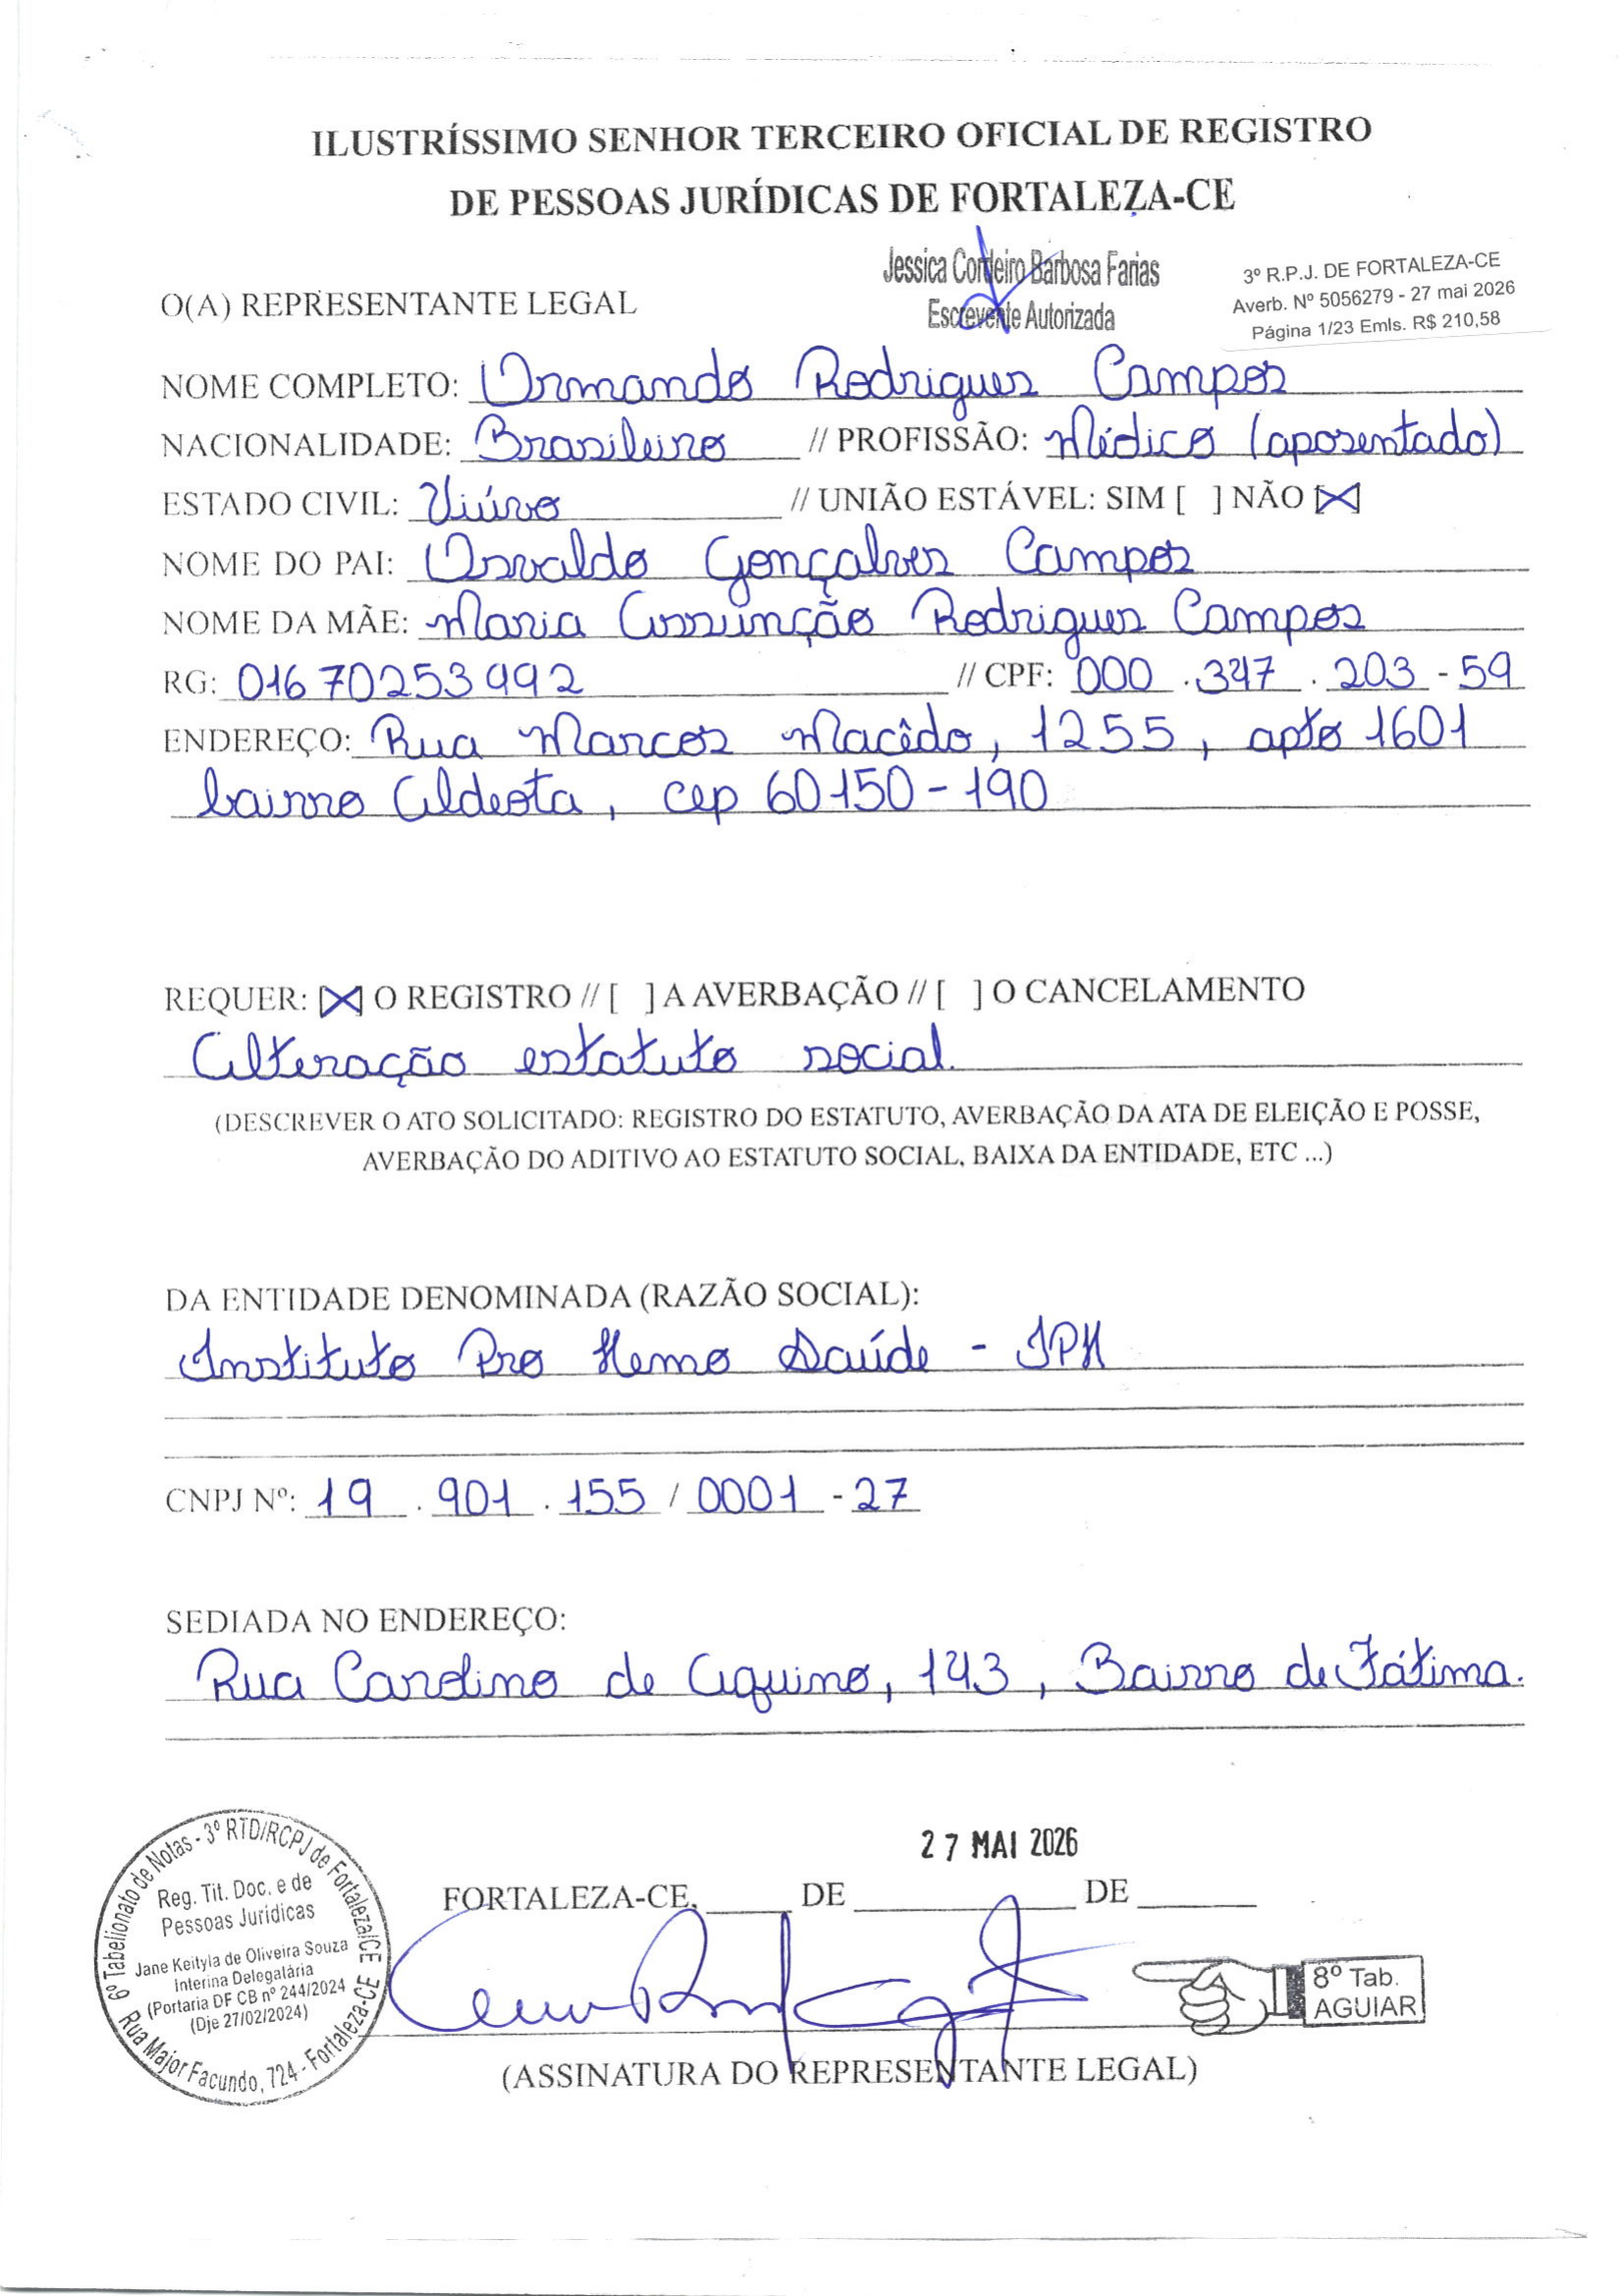 ILUSTRÍSSIMO SENHOR TERCEIRO OFICIAL DE REGISTRO
DE PESSOAS JURÍDICAS DE FORTALEZA-CE
Jessica Cordeiro Barbosa Farias
Escrevente Autorizada
3º R.P.J. DE FORTALEZA-CE
Averb. Nº 5056279 - 27 mai 2026
Página 1/23 Emls. R$ 210,58
O(A) REPRESENTANTE LEGAL
NOME COMPLETO: Ormando Rodrigues Campos
NACIONALIDADE: Brasileiro // PROFISSÃO: Médico (aposentado)
ESTADO CIVIL: Viúvo // UNIÃO ESTÁVEL: SIM [ ] NÃO [X]
NOME DO PAI: Osvaldo Gonçalves Campos
NOME DA MÃE: Maria Assunção Rodrigues Campos
RG: 01670253992 // CPF: 000.347.203-59
ENDEREÇO: Rua Marcos Macêdo, 1255, apto 1601
bairro Aldeota, cep 60150-190
REQUER: [X] O REGISTRO // [ ] A AVERBAÇÃO // [ ] O CANCELAMENTO
Alteração estatuto social.
(DESCREVER O ATO SOLICITADO: REGISTRO DO ESTATUTO, AVERBAÇÃO DA ATA DE ELEIÇÃO E POSSE,
AVERBAÇÃO DO ADITIVO AO ESTATUTO SOCIAL, BAIXA DA ENTIDADE, ETC ...)
DA ENTIDADE DENOMINADA (RAZÃO SOCIAL):
Instituto Pro Hemo Saúde - IPH
CNPJ Nº: 19.901.155/0001-27
SEDIADA NO ENDEREÇO:
Rua Cardino de Aquino, 143, Bairro de Fátima.
27 MAI 2026
FORTALEZA-CE, DE DE
(ASSINATURA DO REPRESENTANTE LEGAL)
8º Tab.
AGUIAR
6º Tabelionato de Notas - 3º RTD/RCPJ de Fortaleza/CE
Reg. Tit. Doc. e de
Pessoas Jurídicas
Jane Keityla de Oliveira Souza
Interina Delegatária
(Portaria DF CB nº 244/2024
(Dje 27/02/2024)
Rua Major Facundo, 724 - Fortaleza-CE